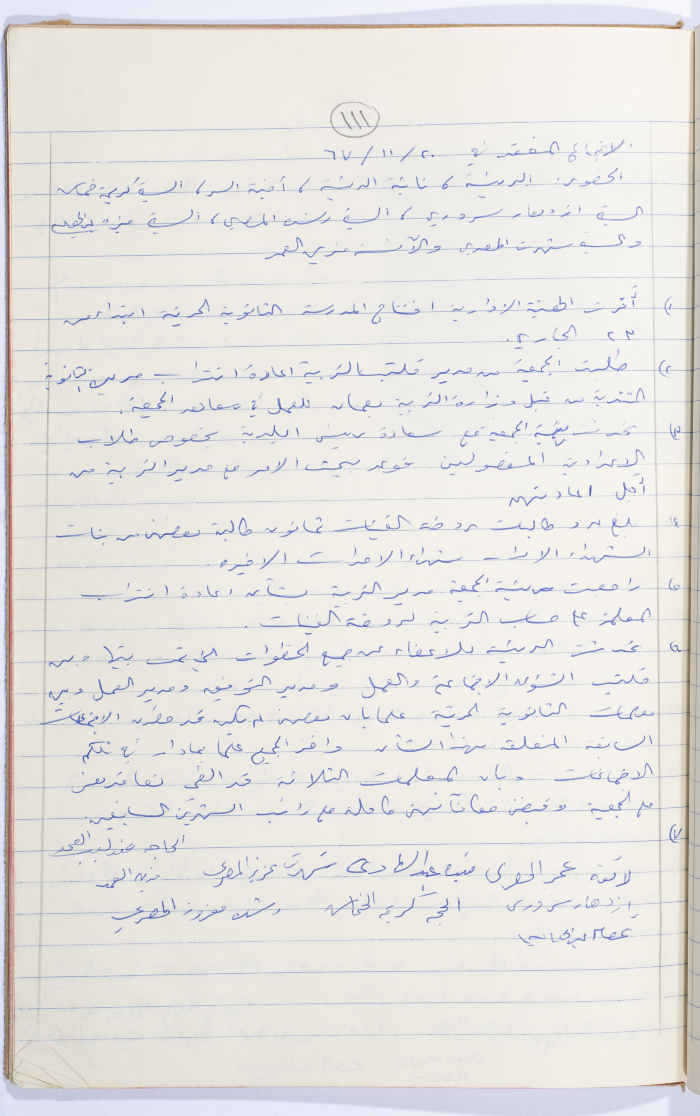 ١١١
الاجتماع المنعقد في ٢٠/١١/٦٧
الحضور: الرئيسة، نائبة الرئيسة، أمينة السر، السيدة كريمة
السيدة ازدهار سروري، السيدة رشدة المصري، السيدة
والسيدة شهرت المصري والآنسة فدين العمد
١) أقرت الهيئة الادارية افتتاح المدرسة الثانوية الحرة ابتداء من
٢٣ الجاري.
٢) طلبت الجمعية من مدير مكتب التربية اعادة انتداب الثانوية
المنتدبة من قبل وزارة التربية بعمان للعمل في معاهد الجمعية.
٣) تحدثت الجمعية مع سعادة رئيس البلدية بخصوص طلاب
الاعدادية المفصولين فوعد ببحث الامر مع مدير التربية من
أجل اعادتهن
٤) بلغ عدد طالبات روضة الفتيات ثمانون طالبة بعضهن من بنات
الشهداء شهداء الاحداث الاخيرة.
٥) راجعت رئيسة الجمعية مدير التربية بشأن اعادة انتداب
المعلمة على حساب التربية لروضة الفتيات.
٦) تحدثت الرئيسة للاعضاء عن جميع الخطوات التي تمت بينها وبين
مكتب الشؤون الاجتماعية والعمل ومدير التوفيق ومدير العمل وبين
معلمات الثانوية الحرة علما بان بعضهن لم يكن قد حضرن الاجتماعات
السابقة المتعلقة بهذا الشأن واخذ الجميع علما بما دار في تلكم
الاجتماعات وبان المعلمات الثلاثة قد الغي تعاقدهن
مع الجمعية وقبضن مكافآتهن كاملة مع راتب الشهرين السابقين.
٧)
الحاجة عندليب العمد
لائقة عمر المصري عبد الهادي شهرت عزيز المصري فدين العمد
ازدهار سروري الحجة كريمة رشدة معزوز المصري